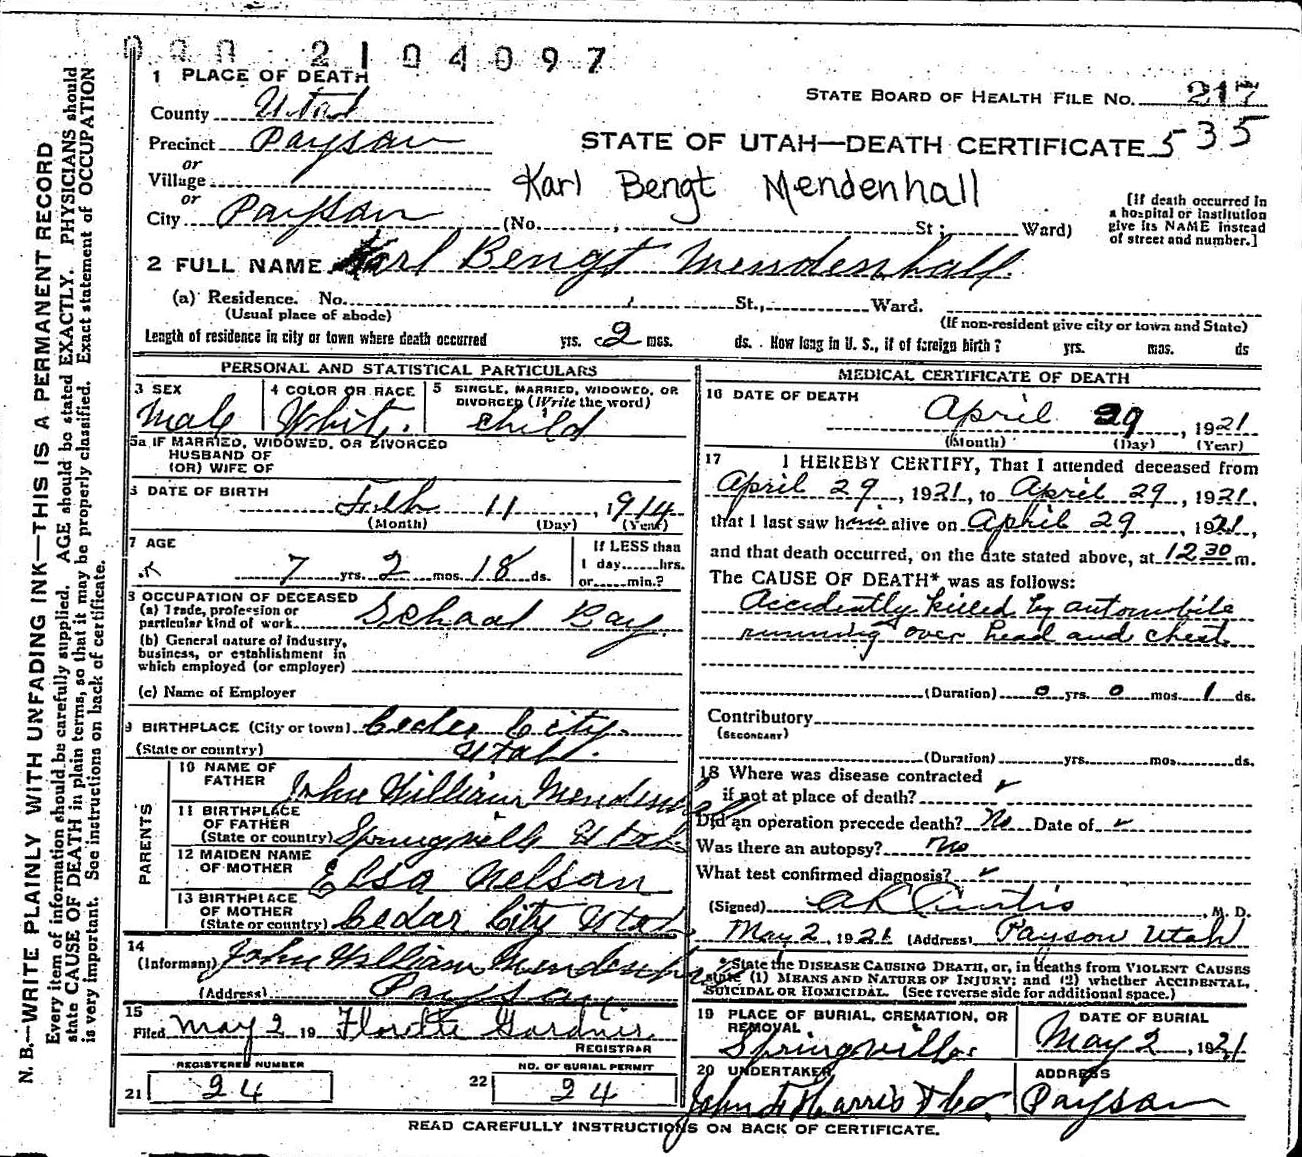 000 2104097
1 PLACE OF DEATH
STATE BOARD OF HEALTH FILE NO. 217
County Utah
535
Precinct Payson
STATE OF UTAH—DEATH CERTIFICATE
or
Village
Karl Bengt Mendenhall
or
City Payson (No. , St; Ward)
[If death occurred in
a hospital or institution
give its NAME instead
of street and number.]
2 FULL NAME Karl Bengt Mendenhall
(a) Residence. No. , St., Ward.
(Usual place of abode)
(If non-resident give city or town and State)
Length of residence in city or town where death occurred yrs. 2 mos. ds. How long in U. S., if of foreign birth? yrs. mos. ds
PERSONAL AND STATISTICAL PARTICULARS
3 SEX
Male
4 COLOR OR RACE
White.
5 SINGLE, MARRIED, WIDOWED, OR
DIVORCED (Write the word)
child
5a IF MARRIED, WIDOWED, OR DIVORCED
HUSBAND OF
(OR) WIFE OF
6 DATE OF BIRTH Feb 11, 1914
(Month) (Day) (Year)
7 AGE
7 yrs. 2 mos. 18 ds.
If LESS than
1 day......hrs.
or......min.?
8 OCCUPATION OF DECEASED
(a) Trade, profession or
particular kind of work School Boy
(b) General nature of industry,
business, or establishment in
which employed (or employer)
(c) Name of Employer
9 BIRTHPLACE (City or town) Cedar City.
(State or country) Utah.
PARENTS
10 NAME OF
FATHER John William Mendenhall
11 BIRTHPLACE
OF FATHER
(State or country) Springville Utah
12 MAIDEN NAME
OF MOTHER Elsa Nelson
13 BIRTHPLACE
OF MOTHER
(State or country) Cedar City Utah
14
(Informant) John William Mendenhall
(Address) Payson
15
Filed May 2 19 Florette Gardner.
REGISTRAR
REGISTERED NUMBER
21 24
NO. OF BURIAL PERMIT
22 24
MEDICAL CERTIFICATE OF DEATH
16 DATE OF DEATH
April 29, 1921
(Month) (Day) (Year)
17 I HEREBY CERTIFY, That I attended deceased from
April 29, 1921, to April 29, 1921.
that I last saw him alive on April 29, 1921,
and that death occurred, on the date stated above, at 12 30 m.
The CAUSE OF DEATH* was as follows:
Accidently killed by automobile
running over head and chest
(Duration) 0 yrs. 0 mos. 1 ds.
Contributory
(SECONDARY)
(Duration) yrs. mos. ds.
18 Where was disease contracted
if not at place of death?
Did an operation precede death? No Date of
Was there an autopsy? No
What test confirmed diagnosis?
(Signed) A L Curtis, M. D.
May 2, 1921 (Address) Payson Utah
*State the DISEASE CAUSING DEATH, or, in deaths from VIOLENT CAUSES
state (1) MEANS AND NATURE OF INJURY; and (2) whether ACCIDENTAL,
SUICIDAL OR HOMICIDAL. (See reverse side for additional space.)
19 PLACE OF BURIAL, CREMATION, OR
REMOVAL
Springville
DATE OF BURIAL
May 2, 1921
20 UNDERTAKER
John Harris & Co.
ADDRESS
Payson
READ CAREFULLY INSTRUCTIONS ON BACK OF CERTIFICATE.
N. B.—WRITE PLAINLY WITH UNFADING INK—THIS IS A PERMANENT RECORD
Every item of information should be carefully supplied. AGE should be stated EXACTLY. PHYSICIANS should
state CAUSE OF DEATH in plain terms, so that it may be properly classified. Exact statement of OCCUPATION
is very important. See instructions on back of certificate.